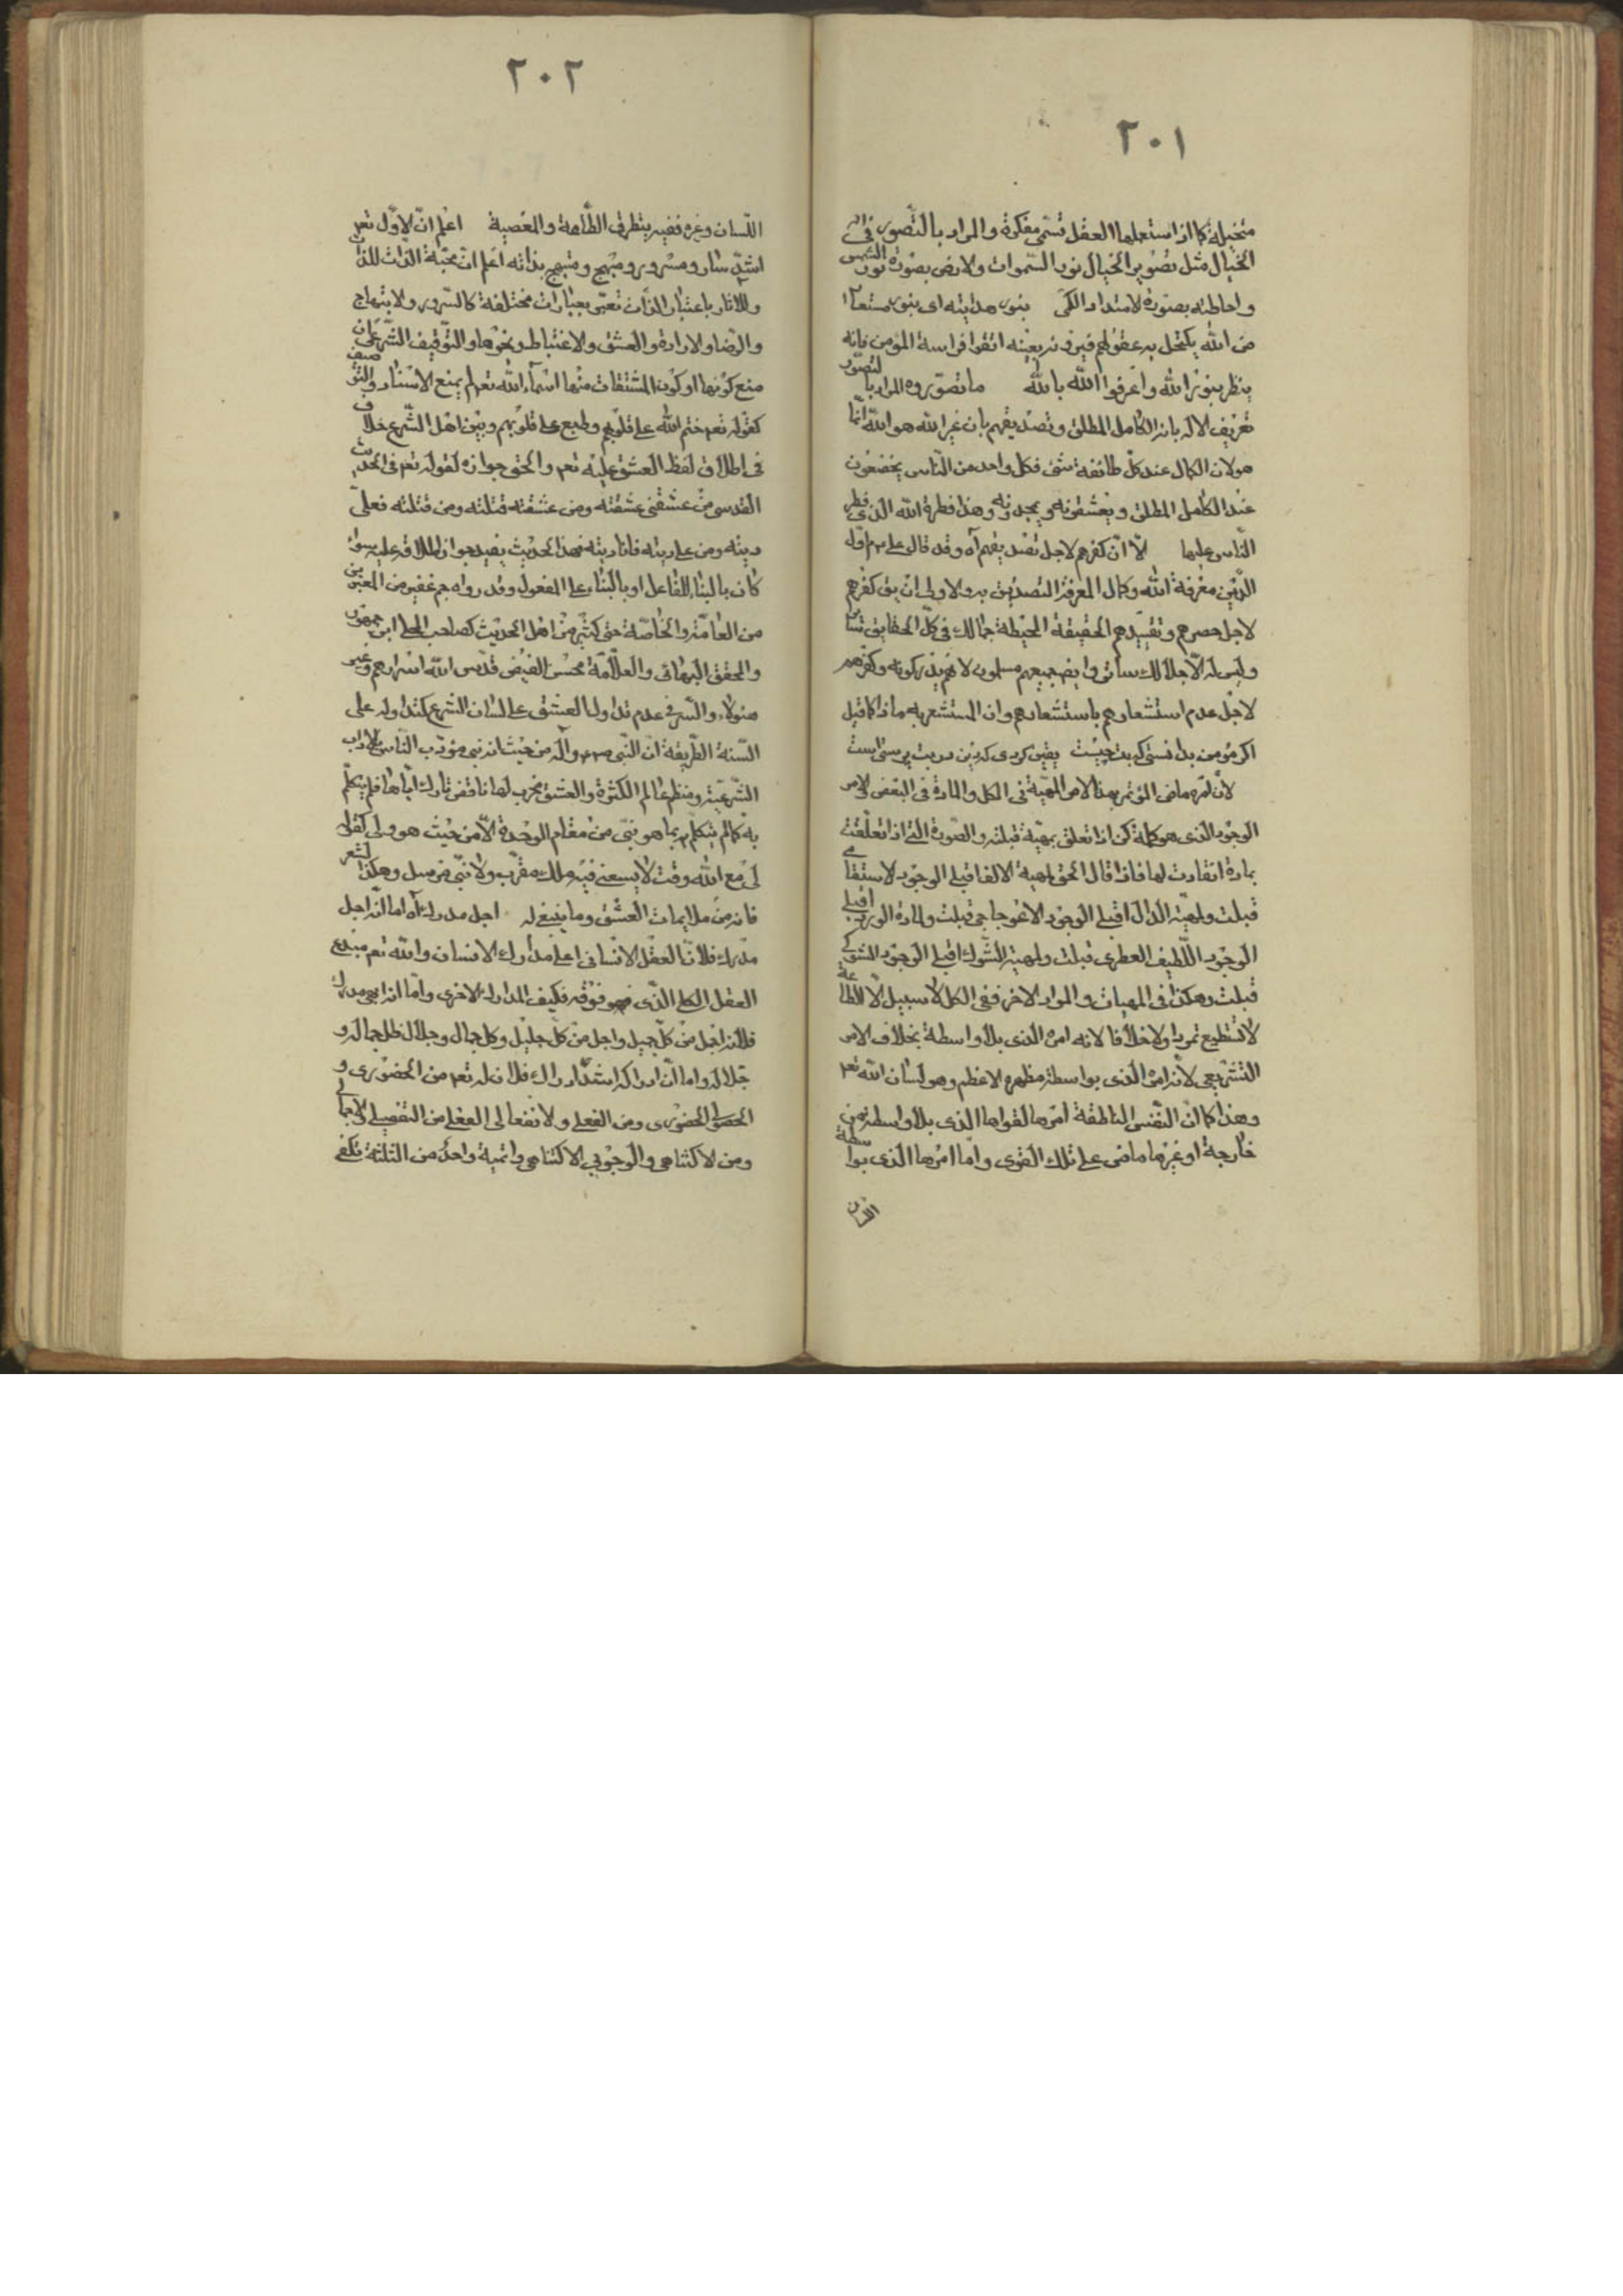 ٢٠١
متخيلة كما اذا استعملها العقل تسمى مفكرة والمراد بالتصور فى
الخيال مثل تصوير الخيال نور السموات والارض بصورة نور الشمس
واحاطته بصورة الامتداد الكمى بنور هدايته اى بنور مستعار
من الله يكتحل به عقولهم فيرونه بعينه اتقوا فراسة المؤمن فانه
ينظر بنور الله واعرفوا الله بالله ما تصوروه المراد بالتصور
تعريف الاله بانه الكامل المطلق وتصديقهم بان غير الله هو الله انما
هو لان الكمال عند كل طائفة شىء فكل واحد من الناس يخضعون
عند الكامل المطلق ويعشقونه ويمجدونه وهذا فطرة الله الذى فطر
الناس عليها الا ان كفرهم لاجل تصديقهم آه وقد قال على ع اول
الدين معرفة الله وكمال المعرفة التصديق به والاولى ان يق كفرهم
لاجل حصرهم وتقييدهم الحقيقة المحيطة جمالك فى كل الحقايق سائر
وليس له الا جلالك ساتر وايضا جميعهم مسلمون لا
لاجل عدم استشعارهم باستشعارهم وان المستشعر به ماذا كما قيل
اكر مؤمن بدانستى كه بت چيست يقين كردى كه دين در بت پرستى است
لان امره ماض المؤتمر بهذا الامر المهية فى الكل والمادة فى البعض والامر
الوجود الذى هو كلمة كن اذا تعلق بمهية قبلته والصورة التى اذا تعلقت
بمادة انقادت لها فاذا قال الحق لمهية الالف اقبلى الوجود الاستقامى
قبلت ولمهية الدال اقبلى الوجود الاعوجاجى قبلت ولمادة الورد اقبلى
الوجود اللطيف العطرى قبلت ولمهية الشوك اقبلى الوجود الشوكى
قبلت وهكذا فى المهيات والمواد الاخر ففى الكل لا سبيل الا للطاعة
لا تستطيع تمردا ولا خلافا لانه امره الذى بلا واسطة بخلاف الامر
التشريعى لانه امره الذى بواسطة مظهره الاعظم وهو لسان الله تعم
وهذا كما ان النفس الناطقة امرها لقواها الذى بلا واسطة
خارجة او غيرها ماض على تلك القوى واما امرها الذى بواسطة
اللسان
٢٠٢
اللسان وغيره ففيه يتطرق الطاعة والمعصية اعلم ان الاول تعم
اشد سار ومسرور ومبهج ومبتهج بذاته اعلم ان محبة الذات للذات
وللاثار باعتبار الذات تعبر بعبارات مختلفة كالسرور والابتهاج
والرضا والارادة والعشق والاغتباط ونحوها والتوقيف الشرعى ان
منع كونها او كون المشتقات منها اسماء الله تعم لم يمنع الاسناد والتوصيف
كقوله تعم ختم الله على قلوبهم وطبع على قلوبهم وبين اهل الشرع خلاف
فى اطلاق لفظ العشق عليه تعم والحق جوازه لقوله تعم فى الحديث
القدسى من عشقنى عشقته ومن عشقته قتلته ومن قتلته فعلى
ديته ومن على ديته فانا ديته فهذا الحديث يفيد جواز اطلاقه عليه سواء
كان بالبناء للفاعل او بالبناء على المفعول وقد رواه جم غفير من المعتبرين
من العامة والخاصة حتى كثير من اهل الحديث كصاحب المجلى ابن جمهور
والمحقق البهائى والعلامة محسن الفيض قدس الله اسرارهم وغير
هؤلاء والسر فى عدم تداول العشق على لسان الشرع كتداوله على
السنة الطريقة ان النبى ص وآله من حيث انه نبى مؤدب الناس بالاداب
الشرعية ومنظم عالم الكثرة والعشق مخرب لها ناقض تارك اياها فلم يتكلم
به كما لم يتكلم بما هو نبى من مقام الوحدة الا من حيث هو ولى كقوله
لى مع الله وقت لا يسعنى فيه ملك مقرب ولا نبى مرسل وهكذا الشعر
فانه من ملايمات العشق وما ينبغى له اجل مدرك آه اما انه اجل
مدرك فلان العقل الانسانى اعلى مدارك الانسان والله تعم مبدع
العقل الكلى الذى هو فوقه فكيف المدارك الاخرى واما انه ابهى مدرك
فلانه اجمل من كل جميل واجل من كل جليل وكل جمال وجلال ظل جماله و
جلاله واما ان ادراكه اشد ادراك فلان له تعم من الحضورى و
الحصولى الحضورى ومن الفعلى والانفعالى الفعلى من التفصيلى والاجمالى
ومن الاكتناهى والوجوبى الاكتناهى واتمية واحد من الثلثة تكفى